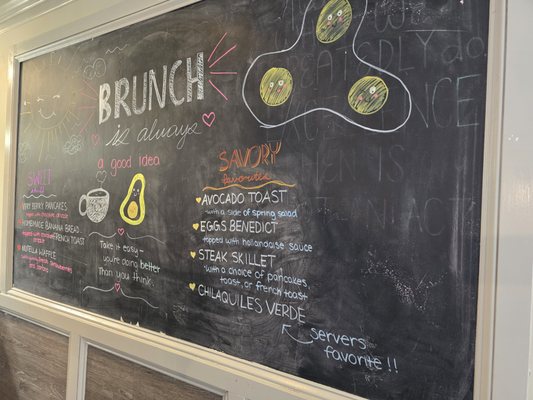 BRUNCH
is always
a good idea
SWEET
VERY BERRY PANCAKES
HOMEMADE BANANA BREAD
FRENCH TOAST
NUTELLA WAFFLE
Take it easy-
you're doing better
than you think.
SAVORY
favorites
AVOCADO TOAST
with a side of spring salad
EGGS BENEDICT
topped with hollandaise sauce
STEAK SKILLET
with a choice of pancakes,
toast, or french toast
CHILAQUILES VERDE
servers
favorite !!